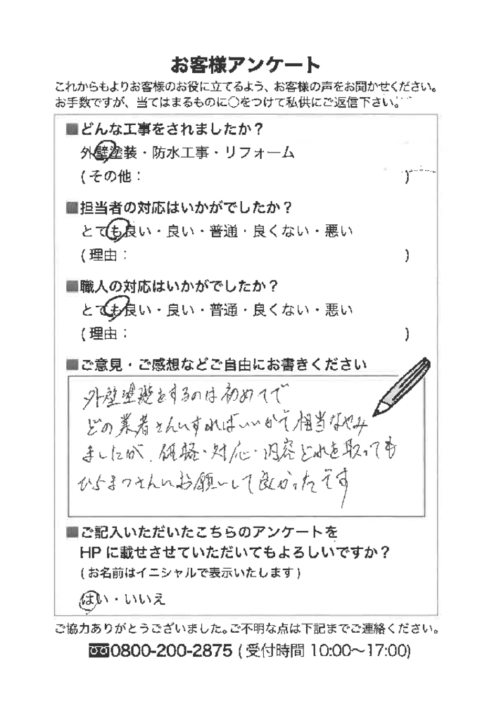 お客様アンケート
これからもよりお客様のお役に立てるよう、お客様の声をお聞かせください。
お手数ですが、当てはまるものに○をつけて私供にご返信下さい。
■どんな工事をされましたか？
外壁塗装・防水工事・リフォーム
(その他： )
■担当者の対応はいかがでしたか？
とても良い・良い・普通・良くない・悪い
(理由： )
■職人の対応はいかがでしたか？
とても良い・良い・普通・良くない・悪い
(理由： )
■ご意見・ご感想などご自由にお書きください
外壁塗装をするのは初めてで
どの業者さんにすればいいかで相当なやみ
ましたが、価格・対応・内容どれを取っても
ひらまつさんにお願いして良かったです
■ご記入いただいたこちらのアンケートを
HPに載せさせていただいてもよろしいですか？
(お名前はイニシャルで表示いたします)
はい・いいえ
ご協力ありがとうございました。ご不明な点は下記までご連絡ください。
0800-200-2875 (受付時間 10:00～17:00)